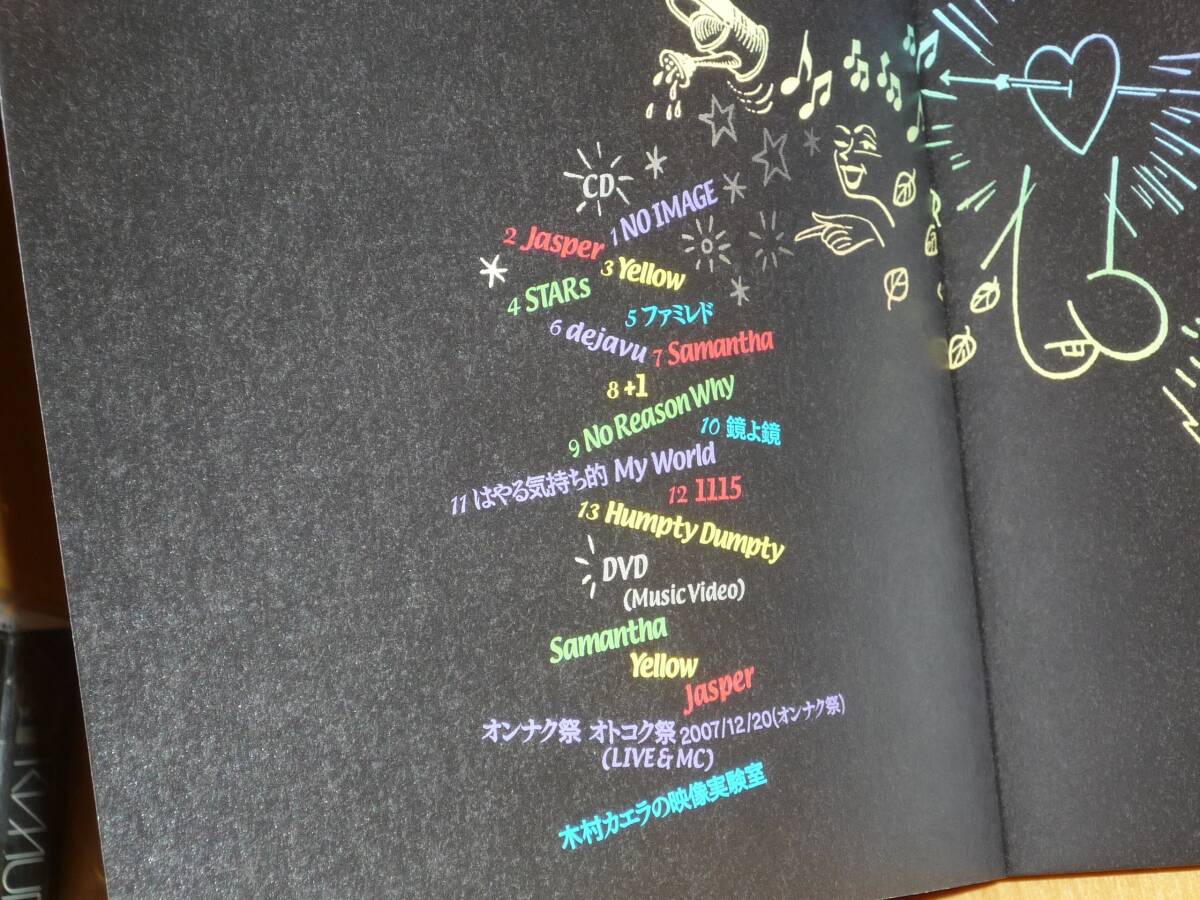 CD
1 NO IMAGE
2 Jasper
3 Yellow
4 STARs
5 ファミレド
6 dejavu
7 Samantha
8 +1
9 No Reason Why
10 鏡よ鏡
11 はやる気持ち的 My World
12 1115
13 Humpty Dumpty
DVD
(Music Video)
Samantha
Yellow
Jasper
オンナク祭 オトコク祭 2007/12/20(オンナク祭)
(LIVE & MC)
木村カエラの映像実験室